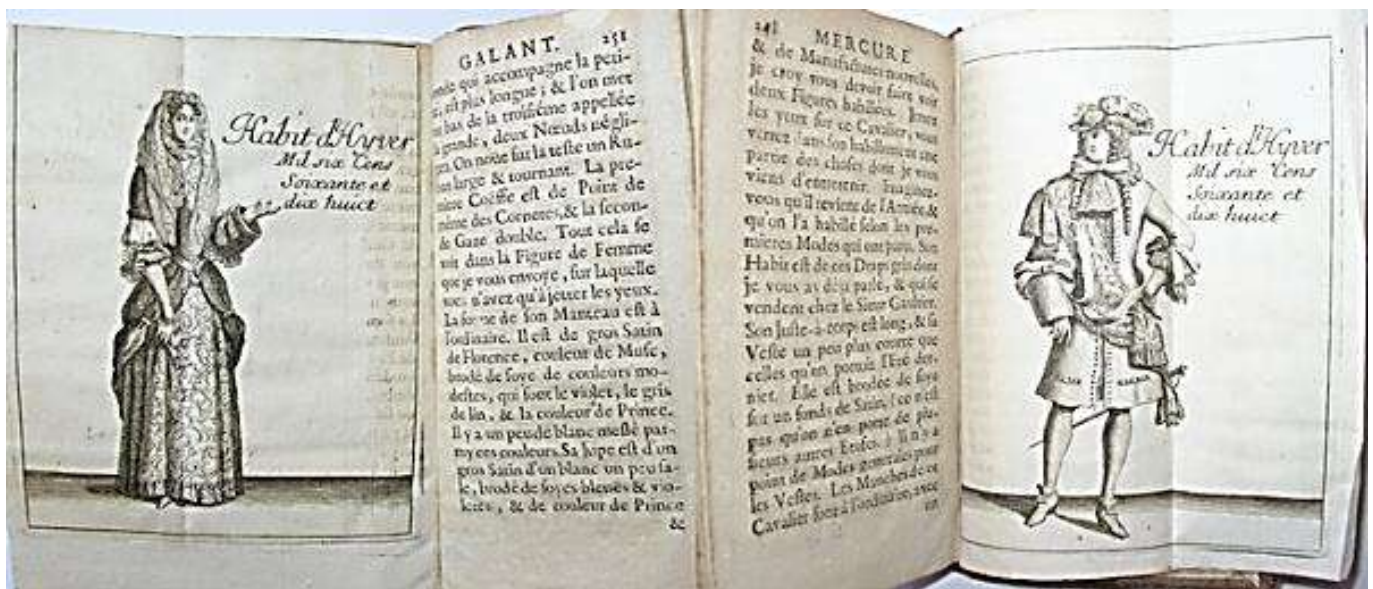 Habit d'Hyver
Mil six Cens
Soixante et
dix huict
GALANT. 251
qui accompagne la peti-
est plus longue; & l'on met
bas de la troisiéme appellée
grande, deux Nœuds négli-
On noüe sur la teste un Ru-
large & tournant. La pre-
Coëffe est de Point de
mesme des Cornetes, & la secon-
de Gaze double. Tout cela se
voit dans la Figure de Femme
que je vous envoye, sur laquelle
vous n'avez qu'à jetter les yeux.
La forme de son Manteau est à
l'ordinaire. Il est de gros Satin
de Florence, couleur de Musc,
brodé de soye de couleurs mo-
destes, qui sont le violet, le gris
de lin, & la couleur de Prince.
Il y a un peu de blanc meslé par-
my ces couleurs. Sa Jupe est d'un
gros Satin d'un blanc un peu sa-
le, brodé de soyes bleuës & vio-
letes, & de couleur de Prince
&
248 MERCURE
& de Manufactures nouvelles,
je croy vous devoir faire voir
deux Figures habillées. Jettez
les yeux sur ce Cavalier, vous
verrez dans son habillement une
partie des choses dont je vous
viens d'entretenir. Imaginez-
vous qu'il revient de l'Armée, &
qu'on l'a habillé selon les pre-
mieres Modes qui ont paru. Son
Habit est de ces Draps gris dont
je vous ay déja parlé, & qui se
vendent chez le Sieur Gaultier.
Son Juste-à-corps est long, & sa
Veste un peu plus courte que
celles qu'on portoit l'Esté der-
nier. Elle est brodée de soye
sur un fonds de Satin, ce n'est
pas qu'on n'en porte de plu-
sieurs autres Etofes, & il n'y a
point de Modes generales pour
les Vestes. Les Manches de ce
Cavalier sont à l'ordinaire, avec
Habit d'Hyver
Mil six Cens
Soixante et
dix huict